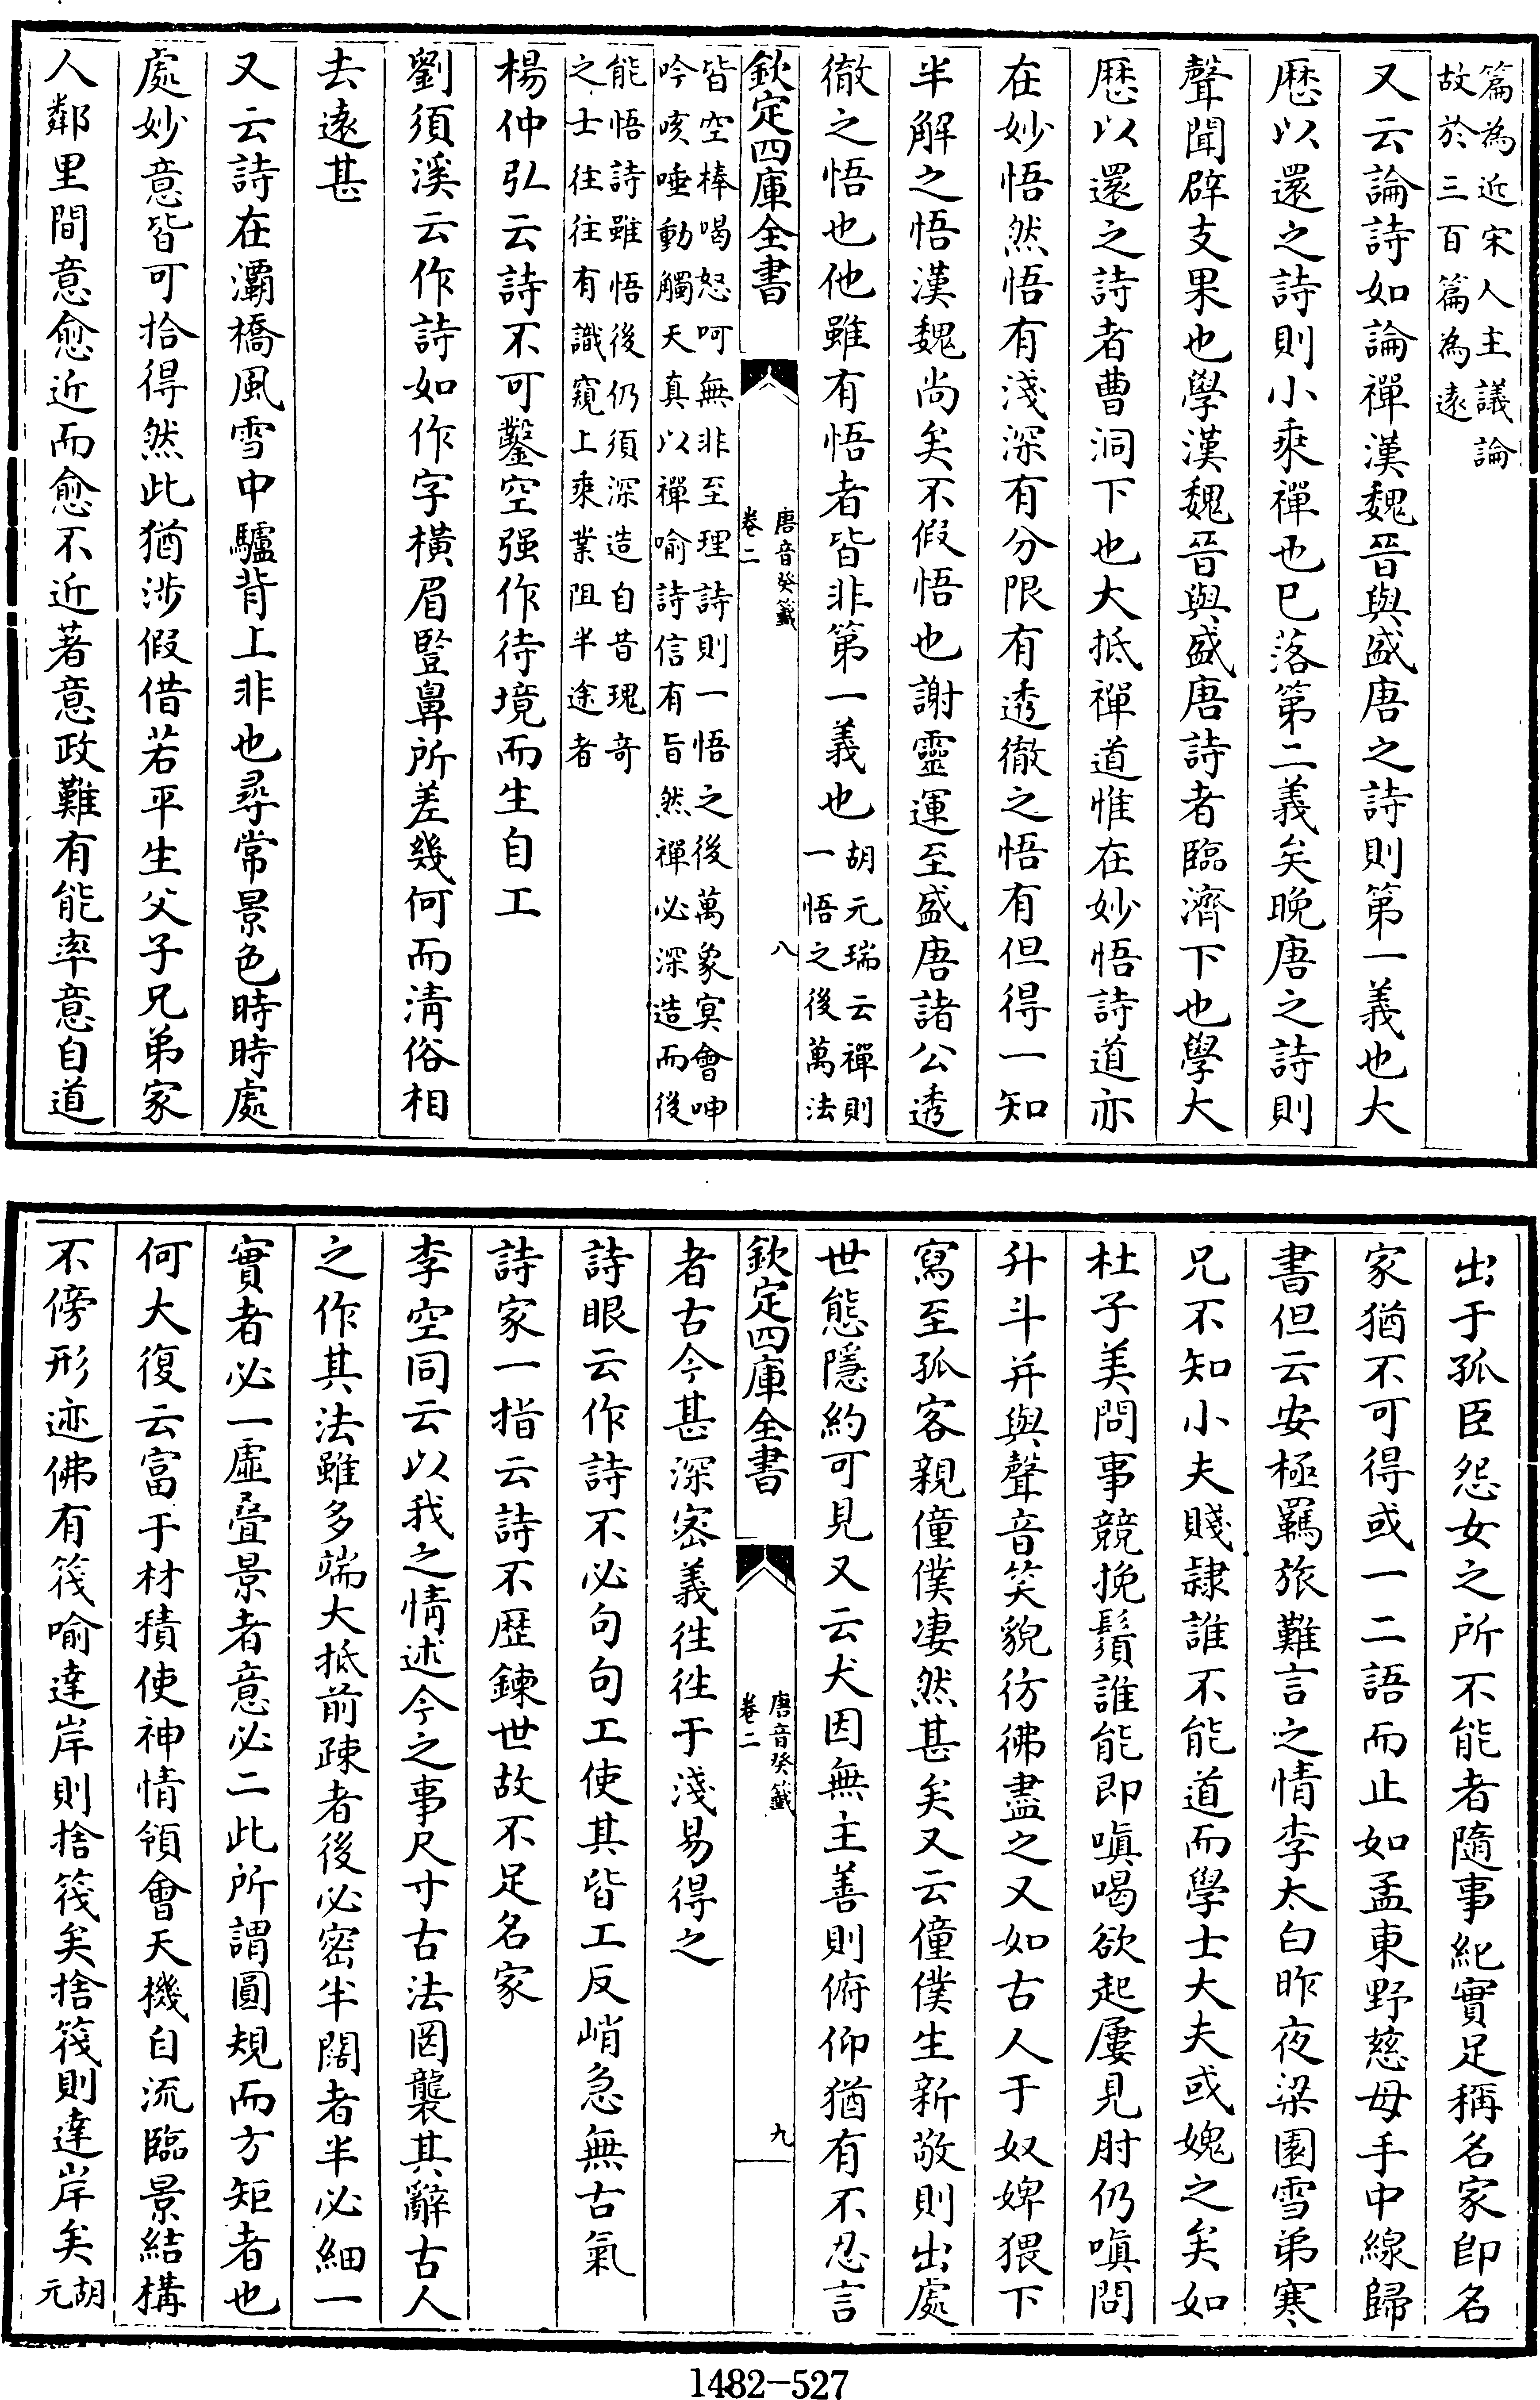 篇為近宋人主議論
故於三百篇為遠
又云論詩如論禪漢魏晉與盛唐之詩則第一義也大
厯以還之詩則小乘禪也已落第二義矣晚唐之詩則
聲聞辟支果也學漢魏晉與盛唐詩者臨濟下也學大
厯以還之詩者曹洞下也大抵禪道惟在妙悟詩道亦
在妙悟然悟有淺深有分限有透徹之悟有但得一知
半解之悟漢魏尚矣不假悟也謝靈運至盛唐諸公透
徹之悟也他雖有悟者皆非第一義也
胡元瑞云禪則
一悟之後萬法
欽定四庫全書
唐音癸籤
卷二
八
皆空棒喝怒呵無非至理詩則一悟之後萬象㝠會呻
吟咳唾動觸天真以禪喻詩信有旨然禪必深造而後
能悟詩雖悟後仍須深造自昔瑰奇
之士往往有識窺上乘業阻半途者
楊仲弘云詩不可鑿空强作待境而生自工
劉須溪云作詩如作字橫眉豎鼻所差幾何而清俗相
去遠甚
又云詩在灞橋風雪中驢背上非也尋常景色時時處
處妙意皆可拾得然此猶涉假借若平生父子兄弟家
人鄰里間意愈近而愈不近著意政難有能率意自道
出于孤臣怨女之所不能者隨事紀實足稱名家即名
家猶不可得或一二語而止如孟東野慈母手中線歸
書但云安極羈旅難言之情李太白昨夜梁園雪弟寒
兄不知小夫賤隸誰不能道而學士大夫或媿之矣如
杜子美問事競挽鬚誰能即嗔喝欲起屢見肘仍嗔問
升斗并與聲音笑貌彷彿盡之又如古人于奴婢猥下
寫至孤客親僮僕凄然甚矣又云僮僕生新敬則出處
世態隱約可見又云犬因無主善則俯仰猶有不忍言
欽定四庫全書
唐音癸籤
卷二
九
者古今甚深宻義徃徃于淺易得之
詩眼云作詩不必句句工使其皆工反峭急無古氣
詩家一指云詩不歷鍊世故不足名家
李空同云以我之情述今之事尺寸古法罔襲其辭古人
之作其法雖多端大抵前疎者後必密半闊者半必細一
實者必一虛疊景者意必二此所謂圓規而方矩者也
何大復云富于材積使神情領會天機自流臨景結構
不傍形迹佛有筏喻達岸則捨筏矣捨筏則達岸矣
胡
元
1482-527